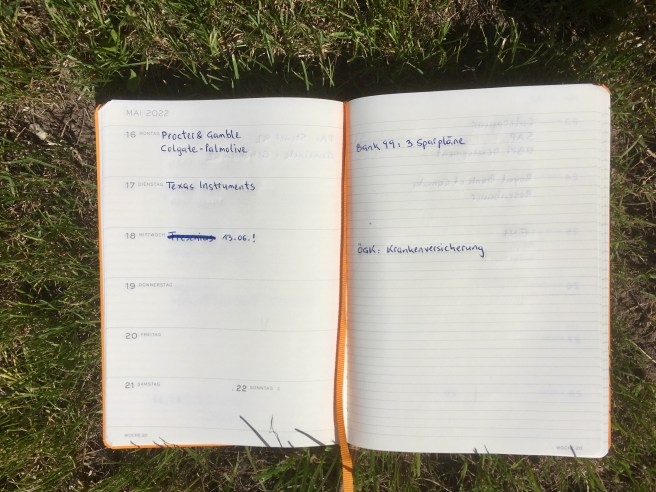 MAI 2022
16 MONTAG Procter & Gamble
Colgate-Palmolive
17 DIENSTAG Texas Instruments
18 MITTWOCH Fresenius 13.06.!
19 DONNERSTAG
20 FREITAG
21 SAMSTAG
22 SONNTAG
Bank 99: 3 Sparpläne
ÖGK: Krankenversicherung